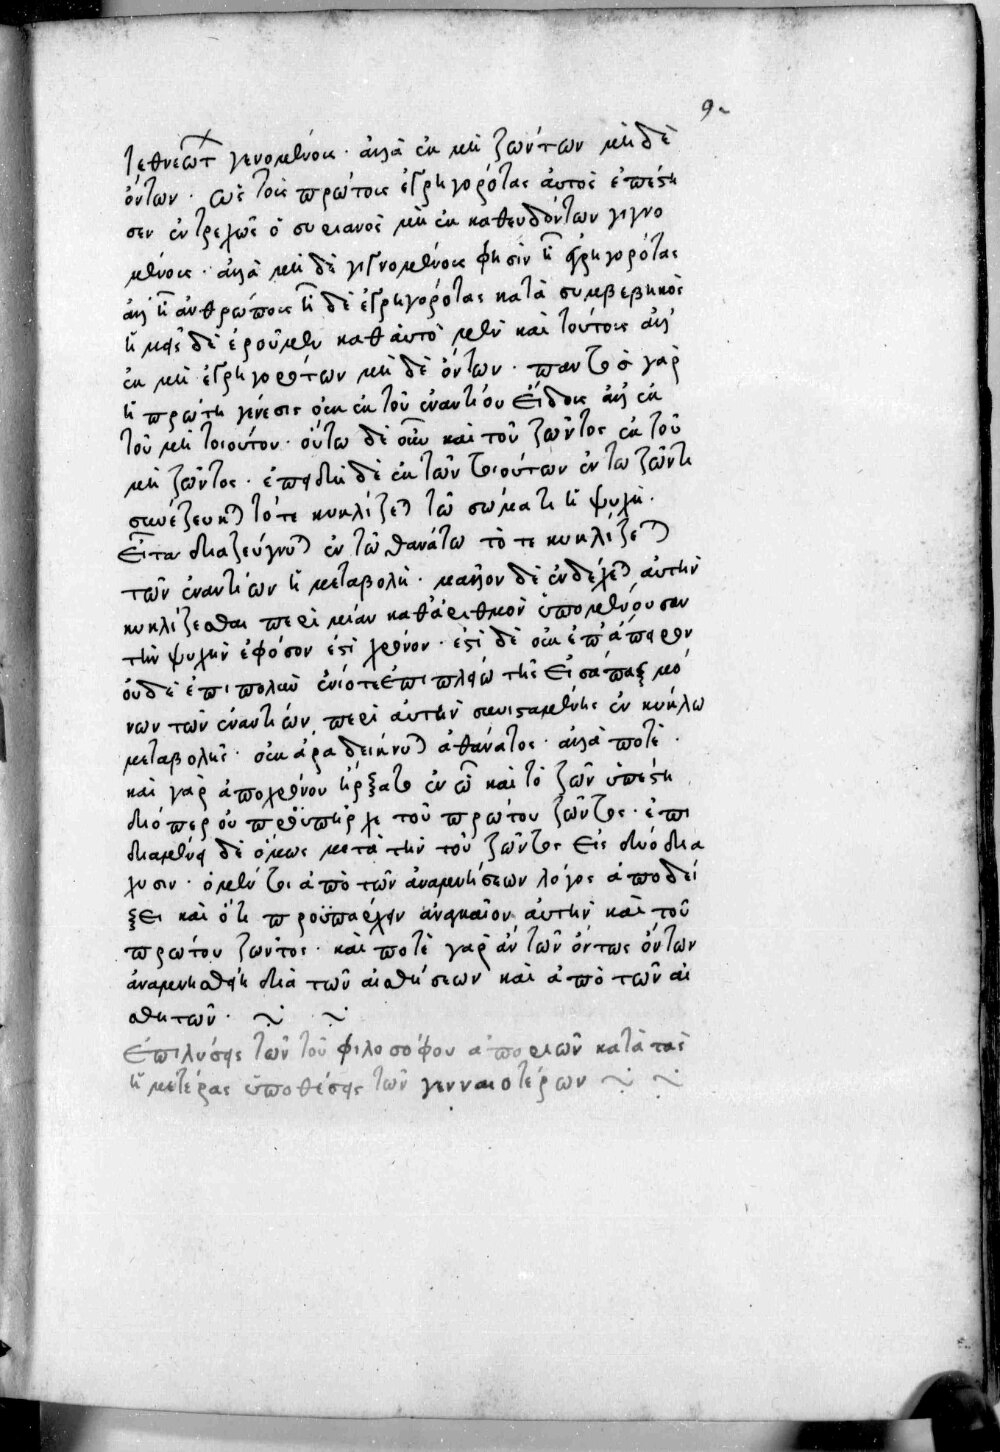 9
τεθνεώτ γενομένοις · ἀλλὰ ἐκ μὴ ζώντων μὴ δὲ
ὄντων · ὡς τοὺς πρώτους ἐγρηγορότας αὐτὸς ἐπέστη
σεν ἐντρεχῶς ὁ συριανὸς μὴ ἐκ καθευδόντων γιγνο
μένους · ἀλλὰ μὴ δὲ γιγνομένους φησὶν ἢ ἐγρηγορότας
ἀλλ' ἢ ἀνθρώπους ἢ δὲ ἐγρηγορότας κατὰ συμβεβηκὸς
ἡμεῖς δὲ ἐροῦμεν καθ αὑτὸ μὲν καὶ τούτους ἀλλ'
ἐκ μὴ ἐγρηγορότων μὴ δὲ ὄντων · παντὸς γὰρ
ἡ πρώτη γένεσις οὐκ ἐκ τοῦ ἐναντίου εἴδους ἀλλ' ἐκ
τοῦ μὴ τοιούτου · οὕτω δὲ οὖν καὶ τοῦ ζῶντος ἐκ τοῦ
μὴ ζῶντος · ἐπειδὴ δὲ ἐκ τῶν τοιούτων ἐν τῶ ζῶντι
συνέζευκται τότε κυκλίζεται τῶ σώματι ἡ ψυχὴ ·
εἶτα διαζεύγνυται ἐν τῶ θανάτω τό τε κυκλίζεται
τῶν ἐναντίων ἡ μεταβολὴ · μᾶλλον δὲ ἐνδέχεται αὐτὴν
κυκλίζεσθαι περὶ μίαν κατ' ἀριθμὸν ὑπομένουσαν
τὴν ψυχὴν ἐφόσον ἐστὶ χρόνον · ἐστὶ δὲ οὐκ ἐπ' ἄπειρον
οὐδὲ ἐπιπολλοὺ ἐνίοτε ἐπιπλείω τῆς εἰσάπαξ μό
νων τῶν ἐναντίων περὶ αὐτὴν συνισταμένης ἐν κύκλω
μεταβολῆς · οὐκ ἄρα δείκνυται ἀθάνατος · ἀλλὰ ποτὲ ·
καὶ γὰρ ἀποχρόνου ἤρξατο ἐν ὧ καὶ τὸ ζῶν ὑπέστη
διόπερ οὐ προϋπῆρχε τοῦ πρώτου ζῶντος · ἐπι
διαμένει δὲ ὅμως μετὰ τὴν τοῦ ζῶντος εἰς δύο διά
λυσιν · ὁ μέντοι ἀπὸ τῶν ἀναμνήσεων λόγος ἀποδεί
ξει καὶ ὅτι προϋπάρχειν ἀναγκαῖον αὐτὴν καὶ τοῦ
πρώτου ζῶντος · καὶ ποτὲ γὰρ ἂν τῶν ὄντως ὄντων
ἀναμνησθείη διὰ τῶν αἰσθήσεων καὶ ἀπὸ τῶν αἰ
σθητῶν ·
ἐπιλύσεις τῶν τοῦ φιλοσόφου ἀποριῶν κατὰ τὰς
ἡμετέρας ὑποθέσεις τῶν γενναιοτέρων